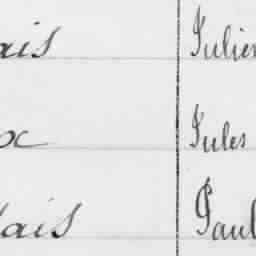 ais Julien
x Jules
lais Paul